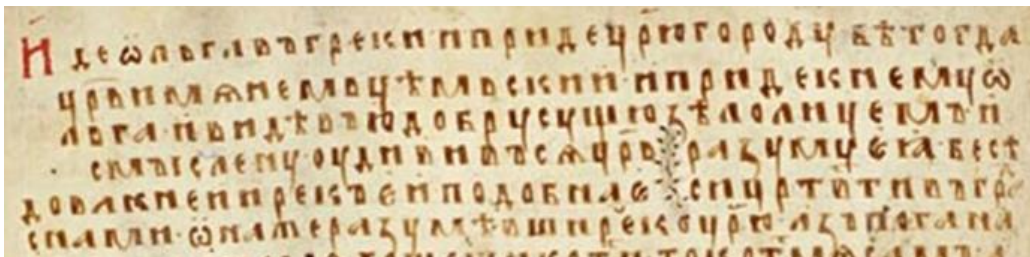 Иде ѡльга въ греки и приде цр҃югороду бѣ тогда
цр҃ь имѧнемь цѣмьскии · и приде к нему ѡ
льга · и видѣвъ ю добру сущю зѣло лицемъ и
смыслену оудививъсѧ цр҃ь разуму еꙗ · бесѣ
довa к неи и рекъ еи подобна еси цр҃тити въ гра
с нами · ѡна же разумѣвши реⷱ҇ ко цр҃ю азъ погана